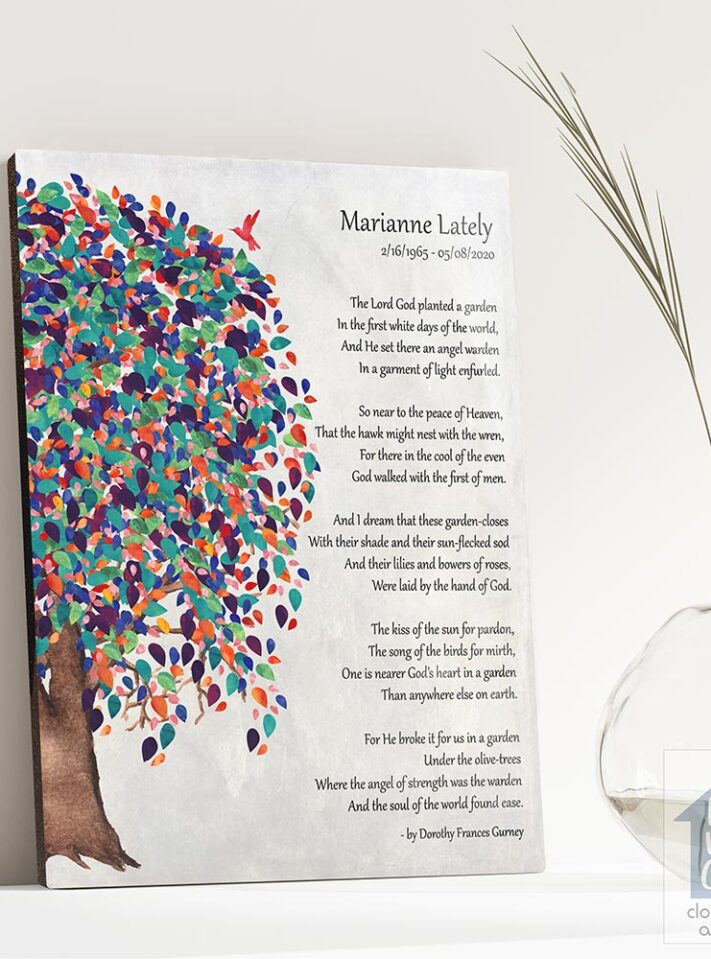 Marianne Lately
2/16/1965 - 05/08/2020
The Lord God planted a garden
In the first white days of the world,
And He set there an angel warden
In a garment of light enfurled.
So near to the peace of Heaven,
That the hawk might nest with the wren,
For there in the cool of the even
God walked with the first of men.
And I dream that these garden-closes
With their shade and their sun-flecked sod
And their lilies and bowers of roses,
Were laid by the hand of God.
The kiss of the sun for pardon,
The song of the birds for mirth,
One is nearer God's heart in a garden
Than anywhere else on earth.
For He broke it for us in a garden
Under the olive-trees
Where the angel of strength was the warden
And the soul of the world found ease.
- by Dorothy Frances Gurney